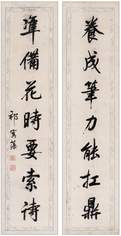 養成筆力能扛鼎
準備花時要索詩
祁寯藻